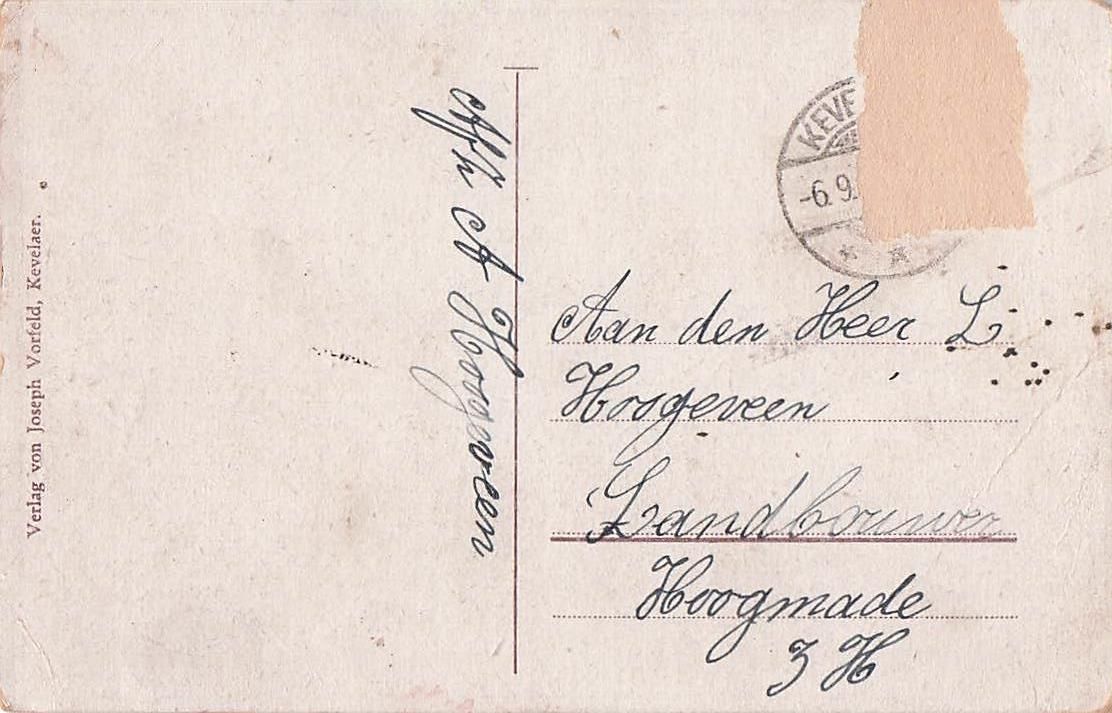 Verlag von Joseph Vorfeld, Kevelaer.
Afz A Hoogeveen
KEVE
-6.9.
* A
Aan den Heer L
Hoogeveen
Landbouwer
Hoogmade
Z H